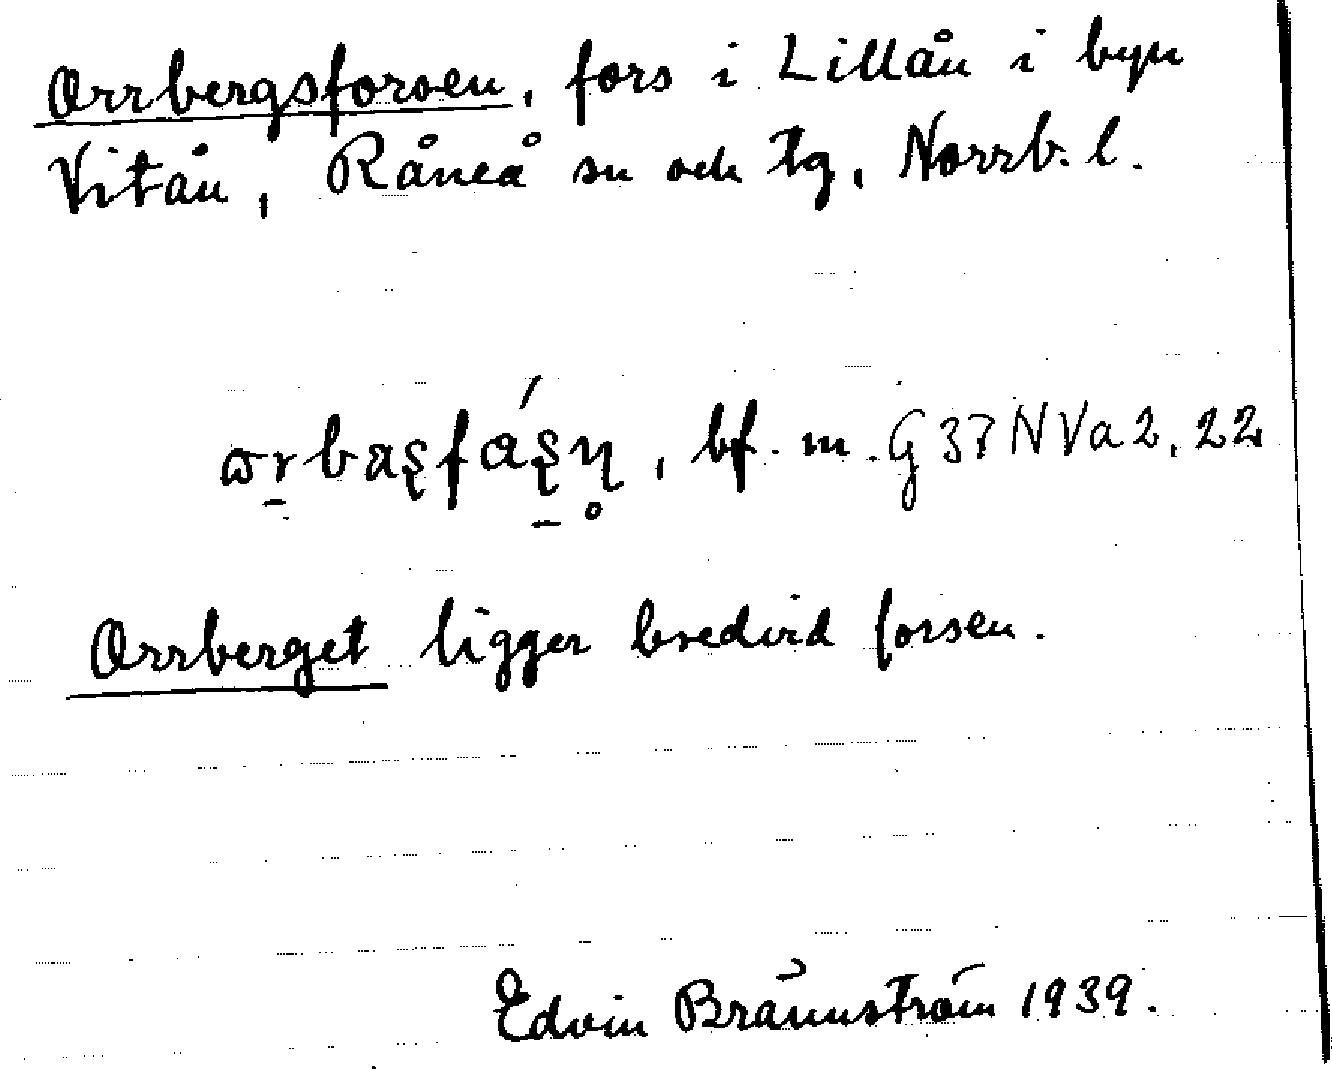 Orrbergsforsen, fors i Lillån i byn
Vitån, Råneå sn och tg, Norrb. l.
bf. m. G37NVa2, 22
Orrberget ligger bredvid forsen.
Edvin Brännström 1939.